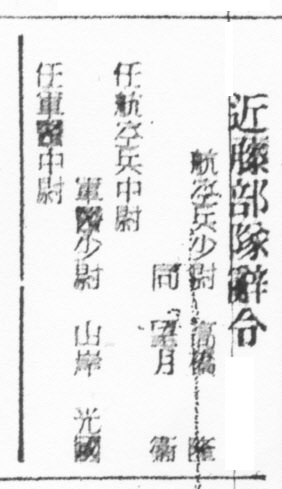 近藤部隊辭令
航空兵少尉 高橋 隆
同 望月 衞
任航空兵中尉
軍醫少尉 山岸 光國
任軍醫中尉